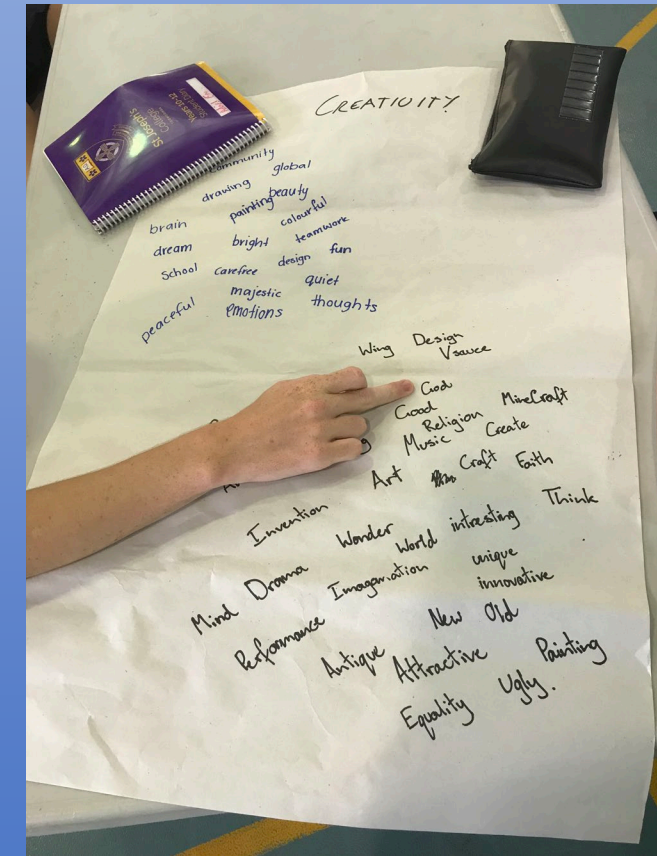 CREATIVITY
St Joseph's
College
Years 10-12
Student Diary
community
drawing global
painting beauty
brain colourful
dream bright teamwork
School carefree design fun
majestic quiet
peaceful emotions thoughts
Wing Design
Vsauce
God
Good
Religion MineCraft
Music Create
Art Craft Faith
Invention
Wonder World intresting Think
Mind Drama Imagamation unique
innovative
Performance New Old
Antique Attractive Painting
Equality Ugly.